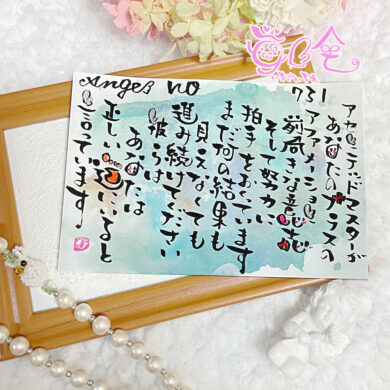 Angel NO
731
アセンテッドマスターが
あなたのプラスの
アファメーション
前向きな意志
そして努力に
拍手をおくっています
まだ何の結果も
見えなくても
進み続けてください
彼らは
あなたは
正しい道にいると
言っています